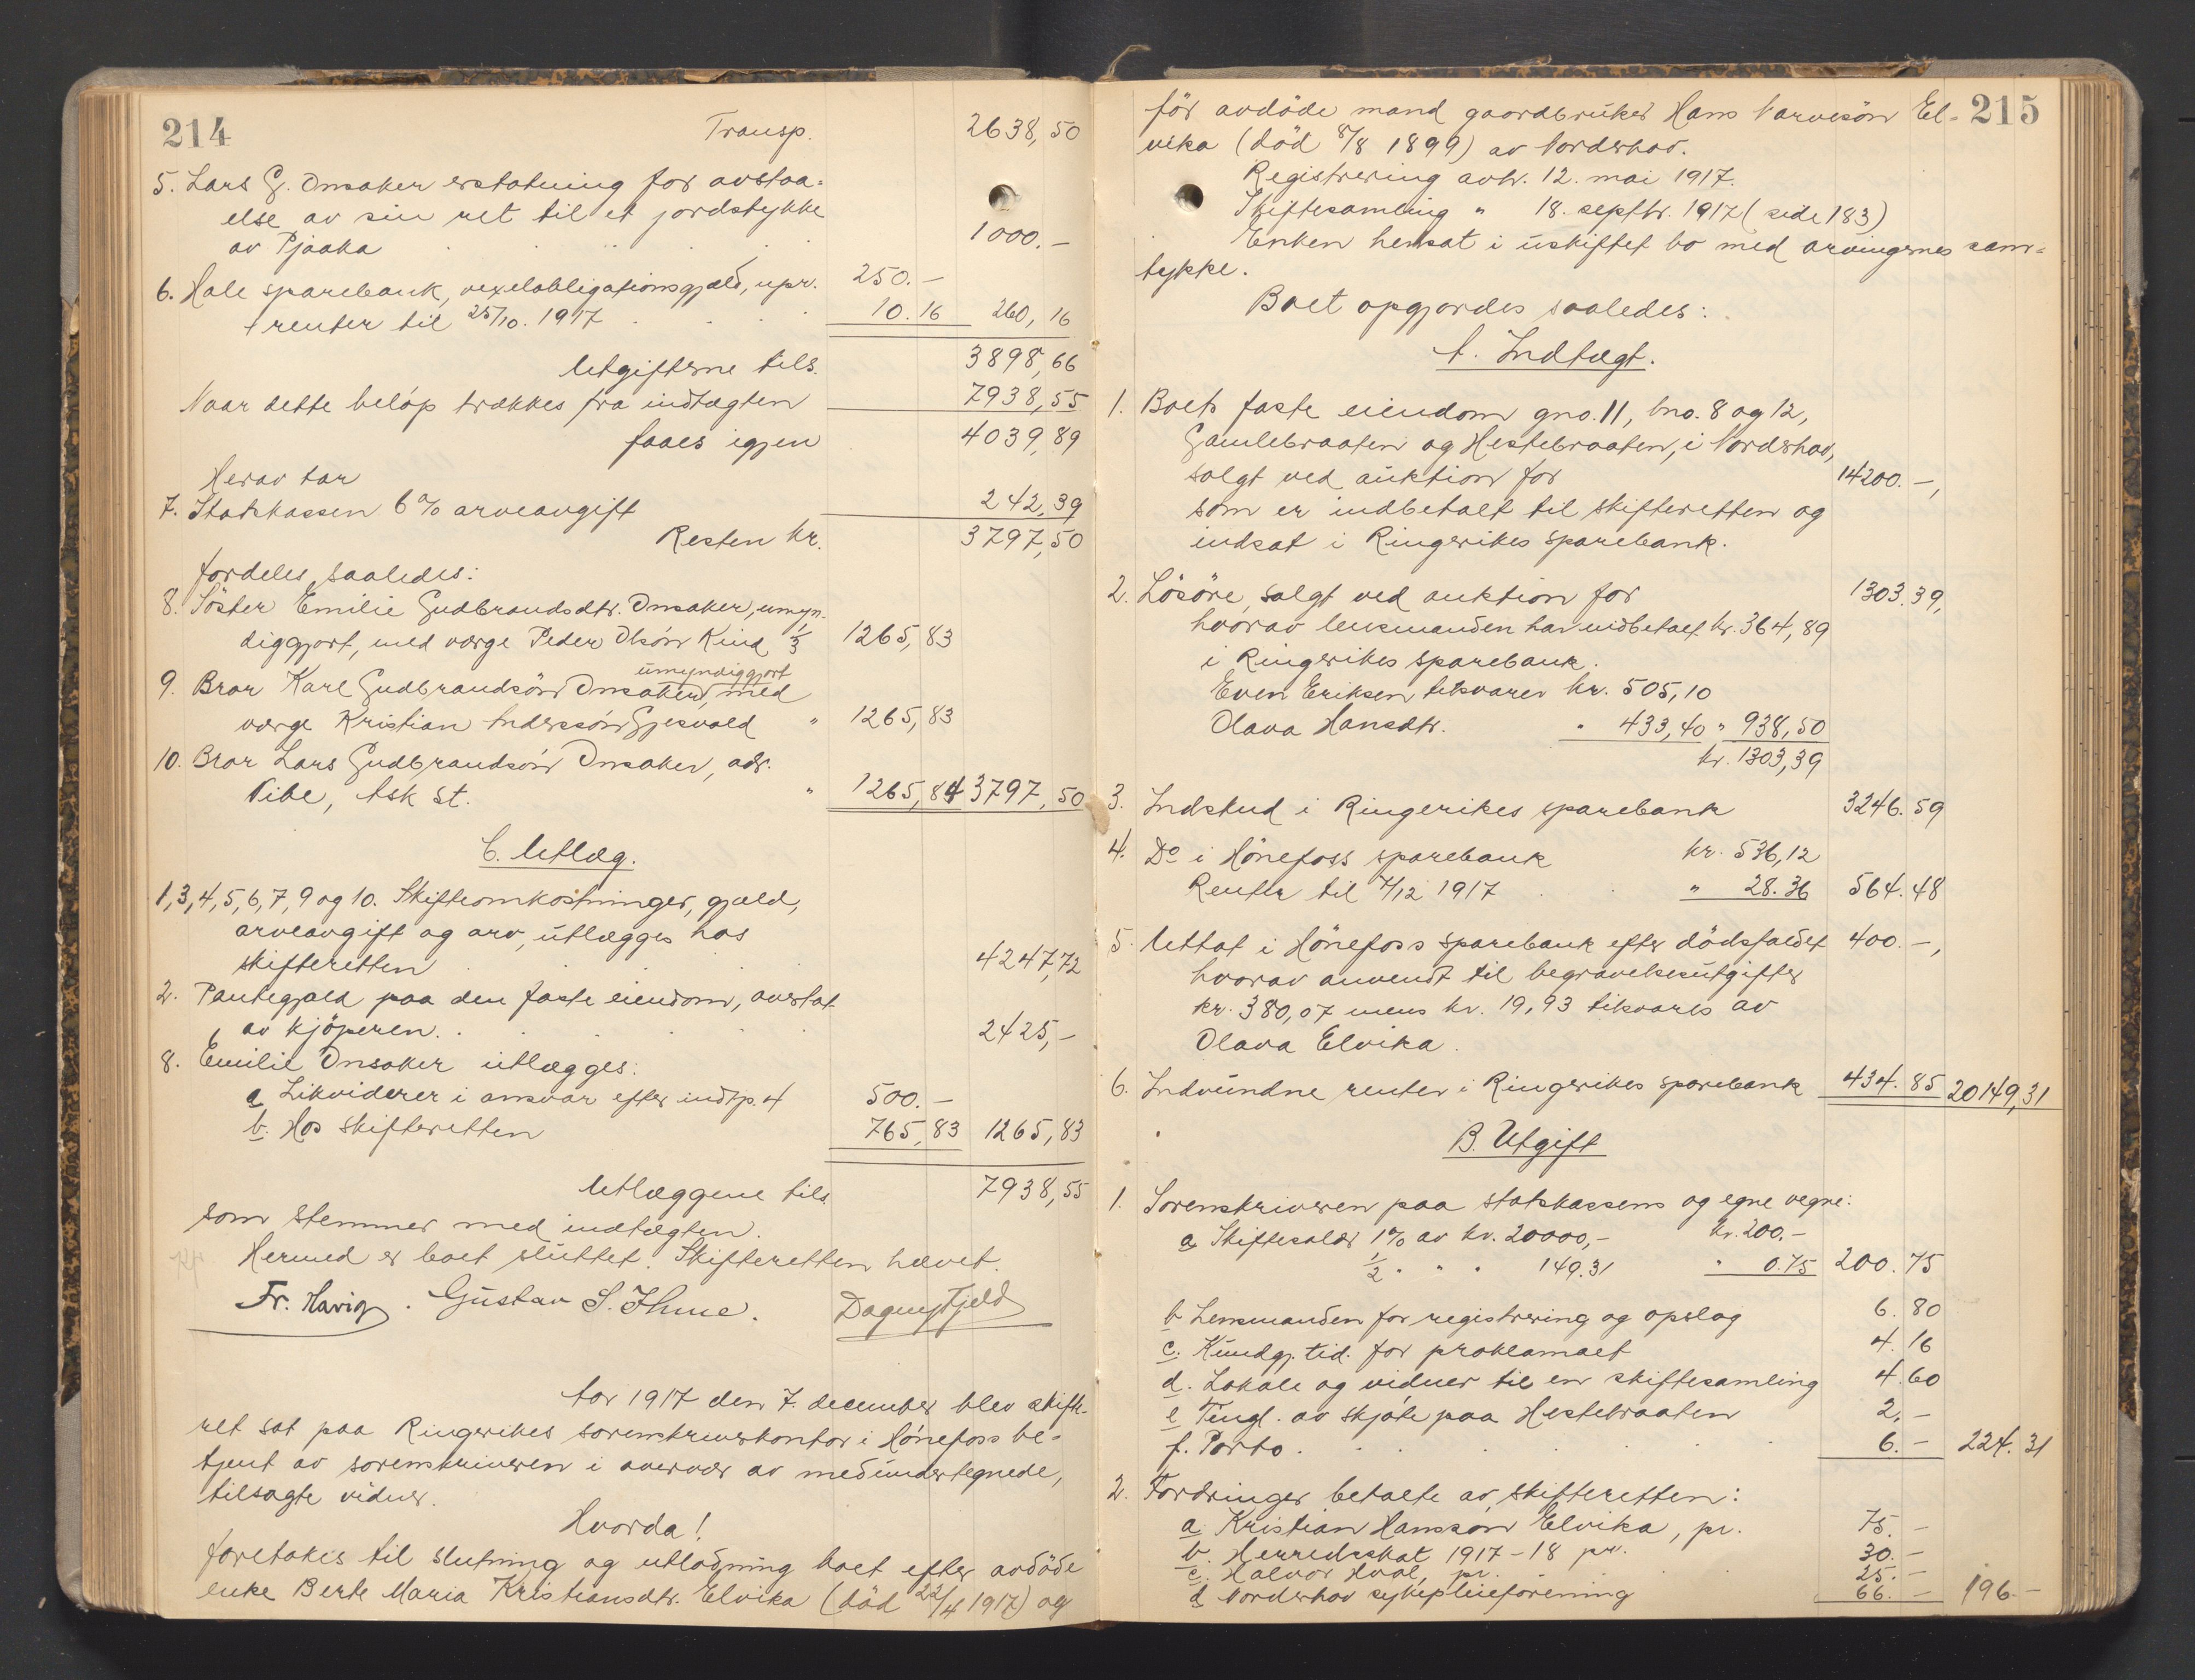 214
Transp. 2638,50
5. Lars G. Onsaker erstatning for avstaa-
else av sin ret til et jordstykke
av Pjaaka 1000.-
6. Hole sparebank, vexelobligationsgjæld, opr. 250.-
+ renter til 25/10. 1917 10.16 260,16
Utgifterne tils. 3898,66
Naar dette beløp trækkes fra indtægten 7938,55
faaes igjen 4039,89
Herav tar
7. Statskassen 6% arveavgift 242,39
Resten kr. 3797,50
fordeles saaledes:
8. Söster Emilie Gudbrandsdtr. Onsaker, umyn-
diggjort, med værge Peder Olsön Kind, 1/3 1265,83
umyndiggjort
9. Bror Karl Gudbrandsön Onsaker, med
værge Kristian Anderssön Gjesvold " 1265,83
10. Bror Lars Gudbrandsön Onsaker, adr.
Vibe, Ask St. " 1265,84 3797,50
C. Utlæg.
1,3,4,5,6,7,9 og 10. Skifteomkostninger, gjæld,
arveavgift og arv, utlægges hos
skifteretten 4247,72
2. Pantegjæld paa den faste eiendom, overtat
av kjöperen. 2425,-
8. Emilie Onsaker utlægges:
a Likviderer i ansvar efter indtp. 4 500.-
b. Hos skifteretten 765,83 1265,83
Utlæggene tils. 7938,55
som stemmer med indtægten.
Hermed er boet sluttet. Skifteretten hævet.
Fr. Havig. Gustav S. Thune. Dagny Fjeld
Aar 1917 den 7. december blev skifte-
ret sat paa Ringerikes sorenskriverkontor i Hönefoss be-
tjent av sorenskriveren i overvær av medundertegnede,
tilsagte vidner.
Hvorda!
foretokes til slutning og utlodning boet efter avdöde
enke Berte Maria Kristiansdtr. Elvika (död 22/4 1917) og
215
för avdöde mand gaardbruker Hans Narvesön El-
vika (död 8/8 1899) av Norderhov.
Registrering avh. 12. mai 1917.
Skiftesamling " 18. septbr. 1917 (side 183)
Enken hensat i uskiftet bo med arvingernes sam-
tykke.
Boet opgjordes saaledes:
A. Indtægt.
1. Boets faste eiendom gno. 11, bno. 8 og 12,
Gamlebraaten og Hestebraaten, i Norderhov,
solgt ved auktion for 14200.-,
som er indbetalt til skifteretten og
indsat i Ringerikes sparebank.
2. Lösöre, solgt ved auktion for 1303.39,
hvorav lensmanden har indbetalt kr. 364,89
i Ringerikes sparebank.
Even Eriksen tilsvarer kr. 505,10
Olava Hansdtr. " 433,40 " 938,50
kr. 1303,39
3. Indskud i Ringerikes sparebank 3246.59
4. Do i Hönefoss sparebank kr. 536,12
Renter til 7/12 1917 " 28.36 564.48
5. Uttat i Hönefoss sparebank efter dödsfaldet 400.-,
hvorav anvendt til begravelsesutgifter
kr. 380,07 mens kr. 19,93 tilsvares av
Olava Elvika.
6. Indvundne renter i Ringerikes sparebank 434.85 20149,31
B. Utgift
1. Sorenskriveren paa statskassens og egne vegne:
a Skiftesalær 1% av kr. 20000,- kr. 200.-
1/2 " " " 149.31 " 0.75 200.75
b Lensmanden for registrering og opslag 6.80
c. Kundgj. tid. for proklamaet 4.16
d. Lokale og vidner til en skiftesamling 4.60
e Tingl. av skjöte paa Hestebraaten 2.-
f. Porto. 6.- 224.31
2. Fordringer betalte av skifteretten:
a. Kristian Hanssön Elvika, pr. 75.-
b. Herredsskat 1917-18 pr. 30.-
c. Halvor Hval, pr. 25.-
d Norderhov sykepleieforening 66.- 196.-